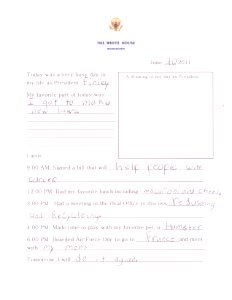 THE WHITE HOUSE
June 20 2011
Today was a very long day in
my role as President Finley
My favorite part of today was
I got to make
new laws
A drawing of me as President
I also:
8:00 AM Signed a bill that will help people with
cancer
12:00 PM Had my favorite lunch including macaroni and cheese
2:00 PM Had a meeting in the Oval Office to discuss Reducing
and Recycling
4:00 PM Made time to play with my favorite pet a Hamster
6:00 PM Boarded Air Force One to go to France and meet
with my mom
Tomorrow I will do it again